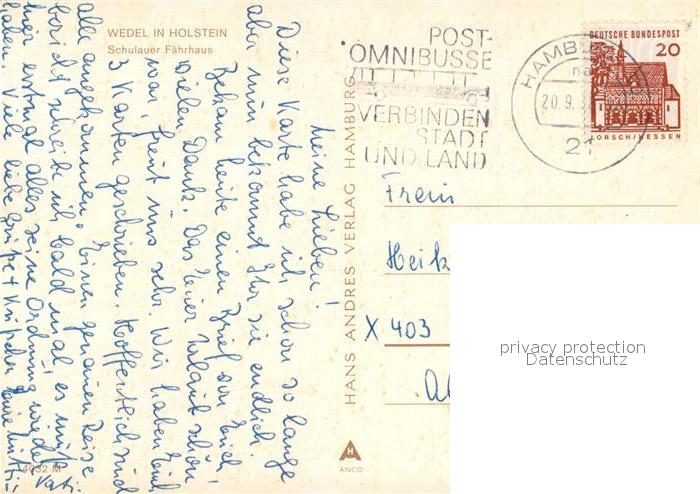 WEDEL IN HOLSTEIN
Schulauer Fährhaus
Meine Lieben!
Diese Karte habe ich schon so lange
aber nun bekommt Ihr sie endlich.
Bekam heute einen Brief von Euch,
vielen Dank. Das Euer Urlaub schön
war, freut uns sehr. Wir haben Euch
3 Karten geschrieben. Hoffentlich sind
alle angekommen. Einen genauen Reise
bericht schreibe ich bald mal, es muß
hier erstmal alles seine Ordnung wieder
haben. Viele liebe Grüße + Küßchen Eure
4032 M
HANS ANDRES VERLAG HAMBURG
ANCO
POST-
OMNIBUSSE
VERBINDEN
STADT
UND LAND
HAMBURG
20.9.
21
DEUTSCHE BUNDESPOST
20
LORSCH/HESSEN
Heik
X 403
privacy protection
Datenschutz